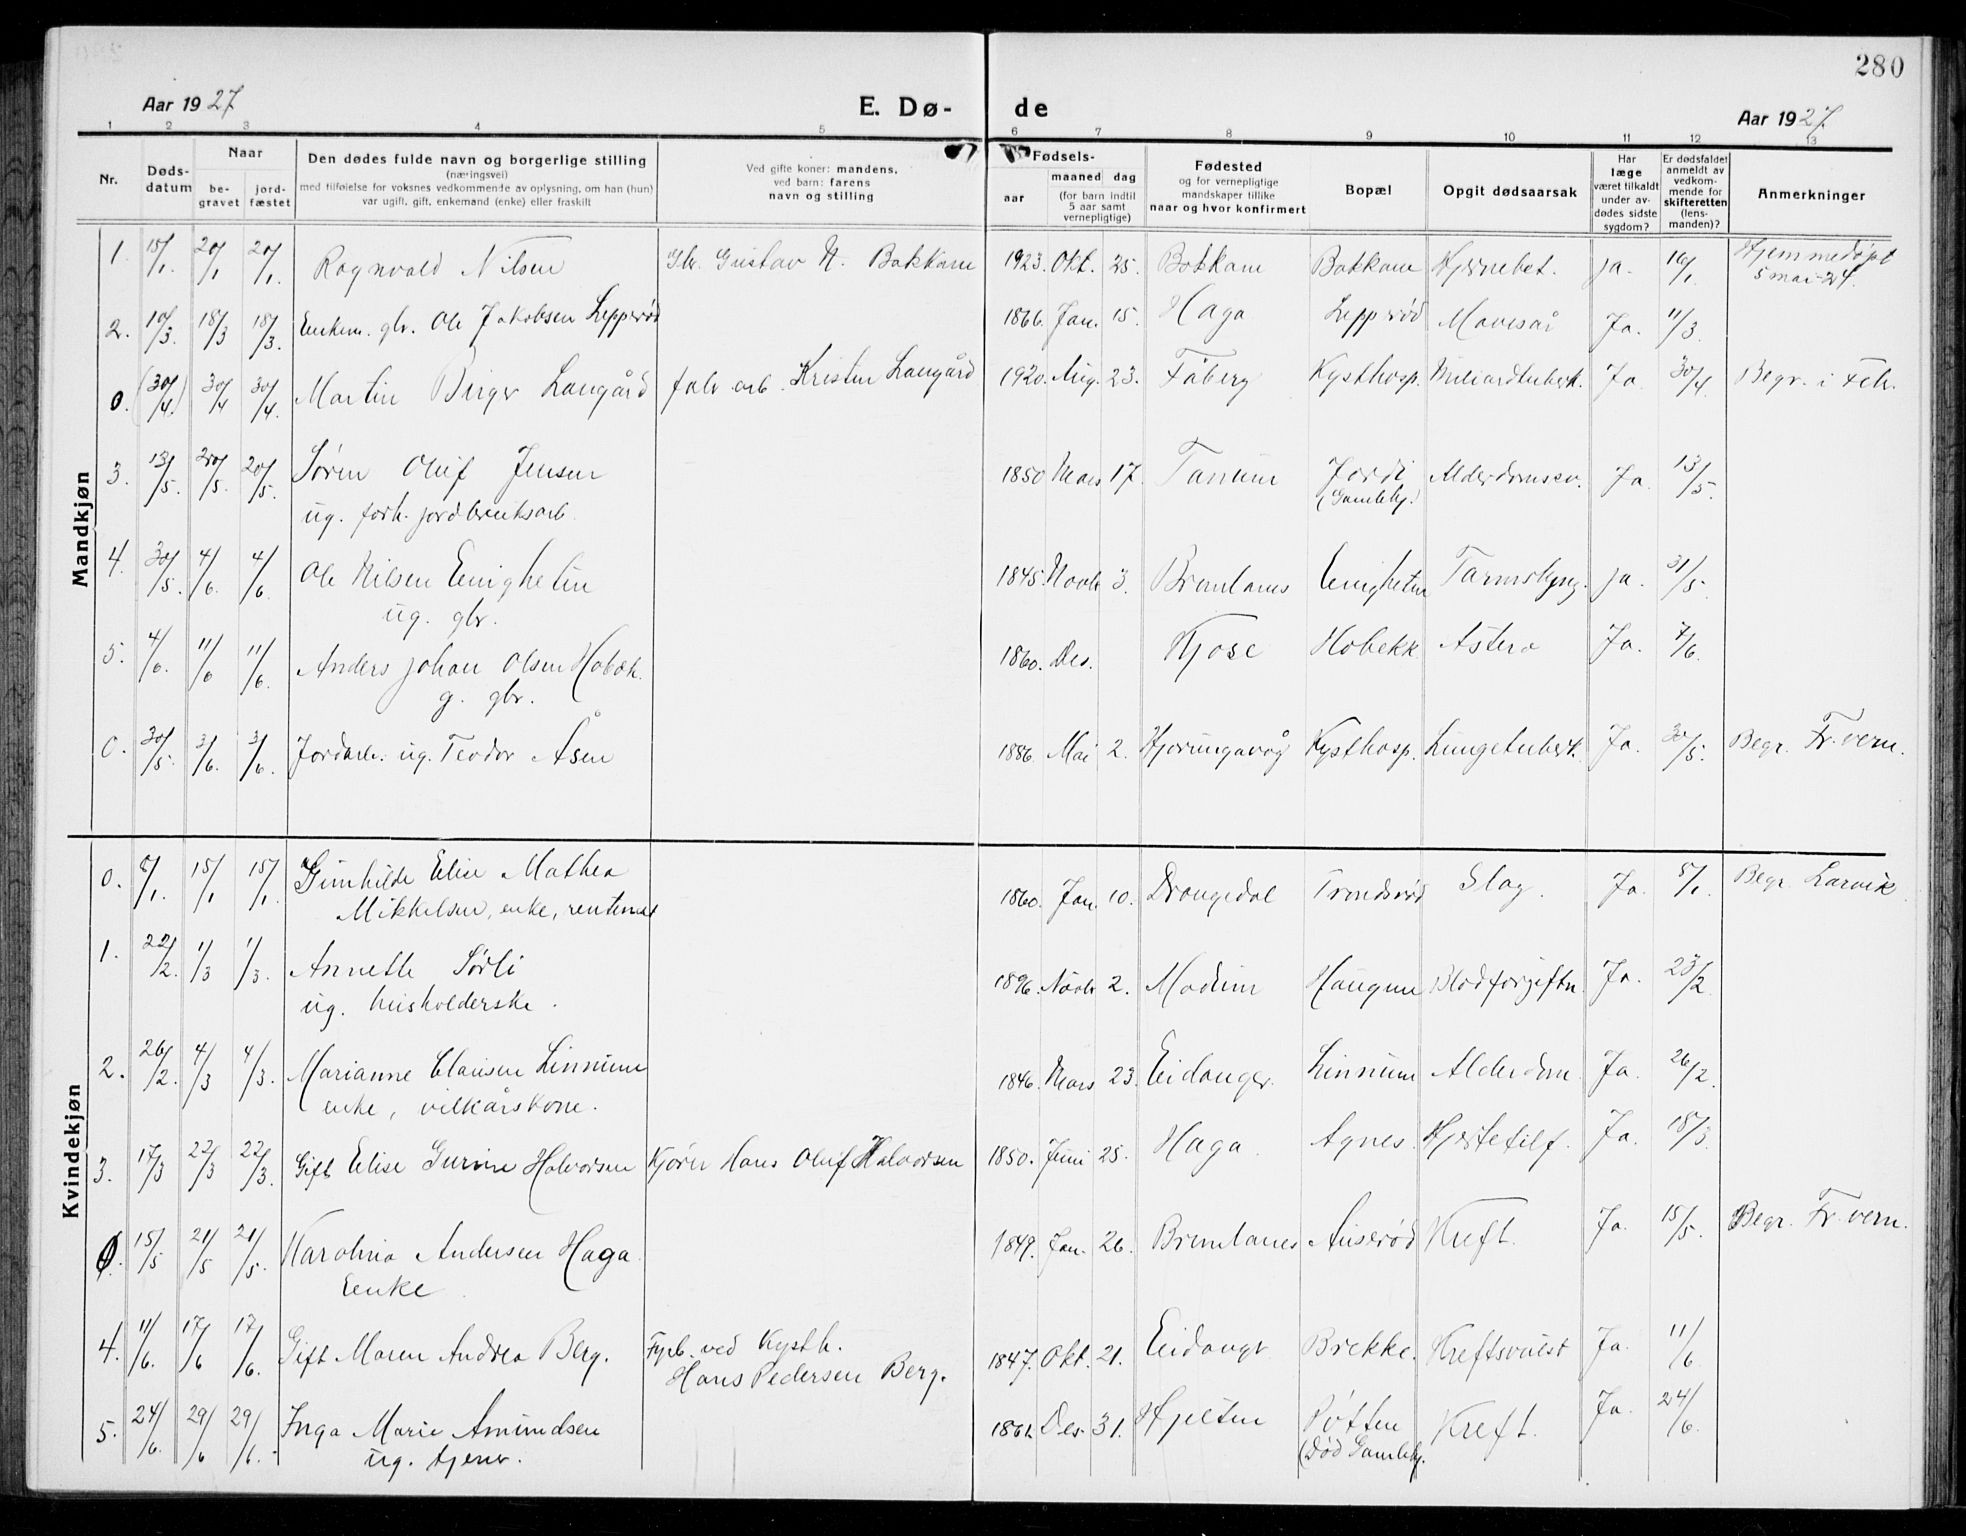 280
Aar 1927
E. Dø-
de
Aar 1927.
1 2 3 4 5 6 7 8 9 10 11 12 13
Nr.
Døds-
datum
Naar
be-
gravet
jord-
fæstet
Den dødes fulde navn og borgerlige stilling
(næringsvei)
med tilføielse for voksnes vedkommende av oplysning, om han (hun)
var ugift, gift, enkemand (enke) eller fraskilt
Ved gifte koner: mandens,
ved barn: farens
navn og stilling
Fødsels-
aar
maaned dag
(for barn indtil
5 aar samt
vernepligtige)
Fødested
og for vernepligtige
mandskaper tillike
naar og hvor konfirmert
Bopæl
Opgit dødsaarsak
Har
læge
været tilkaldt
under av-
dødes sidste
sygdom?
Er dødsfaldet
anmeldt av
vedkom-
mende for
skifteretten
(lens-
manden)?
Anmerkninger
Mandkjøn
1. 15/1. 20/1 20/1. Ragnvald Nilsen Gbr. Gustav N. Bakkane 1923. Okt. 25. Bakkane Bakkane Hjernebet. ja. 16/1. Hjemmedøpt
5 mai-24.
2. 10/3. 18/3 18/3. Enkem. gbr. Ole Jakobsen Lepperød 1866. Jan. 15. Haga Lepperød Mavesår Ja. 11/3
0. (30/4) 30/4 30/4. Martin Birger Langård fabr arb. Kristen Langård 1920. Aug. 23. Fåberg Kysthosp. Miliærtuberk. Ja 30/4. Begr. i
3. 13/5. 20/5. 20/5. Søren Oluf Jensen 1850 Mars 17. Tanum Jordi Alderdomssv. Ja. 13/5.
ug. forh. jordbruksarb. (Gamlehj.)
4. 30/5. 4/6. 4/6. Ole Nilsen Enigheten 1845. Novbr 3. Brunlanes Enigheten Tarmslyng. ja. 31/5.
ug. gbr.
5. 4/6. 11/6 11/6. Anders Johan Olsen Hobæk. 1860. Des. Kjose Hobekk Astma Ja. 7/6.
g. gbr.
0. 30/5. 3/6. 3/6. Jordarb. ug. Teodor Åsen 1886. Mai 2. Hjørungavåg Kysthosp. Lungetuberk. Ja. 30/5. Begr. Fr.vern.
Kvindekjøn
0. 8/1. 15/1 15/1. Gunhilde Elise Mathea 1860. Jan. 10. Drangedal Trondsrød Slag. Ja. 8/1. Begr. Larvik
Mikkelsen, enke,
1. 22/2. 1/3 1/3. Annette Sørli 1896. Novbr 2. Modum Haugene Blodforgiftn. Ja. 23/2.
ug. husholderske.
2. 26/2. 4/3 4/3. Marianne Clausen Linnum 1846. Mars 23. Eidanger. Linnum Alderdom. Ja. 26/2.
enke, vilkårskone.
3. 17/3 22/3 22/3. Gift Elise Gurine Halvorsen Kjører Hans Oluf Halvorsen 1850. Juni 25. Haga Agnes. Hjertefilf. Ja. 18/3.
0. 15/5 21/5 21/5. Karolina Andersen Haga. 1849. Jan. 26. Brunlanes Auserød Kreft. Ja. 15/5. Begr. Fr.vern.
Enke.
4. 11/6. 17/6 17/6. Gift Maren Andrea Berg. Fyrb. ved Kysth. 1847. Okt. 21. Eidangr Brekke. Kreftsvulst Ja. 11/6
Hans Pedersen Berg.
5. 24/6. 29/6 29/6. Inga Marie Amundsen 1861. Des. 31. Hjelten Pøtten Kreft. Ja. 24/6
ug. tjener. (Død Gamlehj.